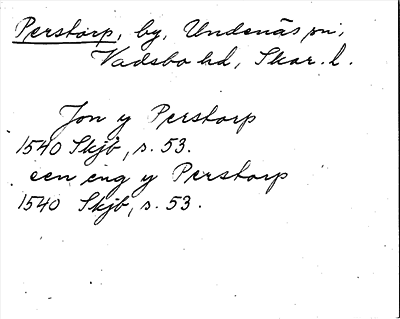 Perstorp, by, Undenäs sn,
Vadsbo hd, Skar. l.
Jon y Perstorp
1540 Skjb, s. 53.
een eng y Perstorp
1540 Skjb, s. 53.